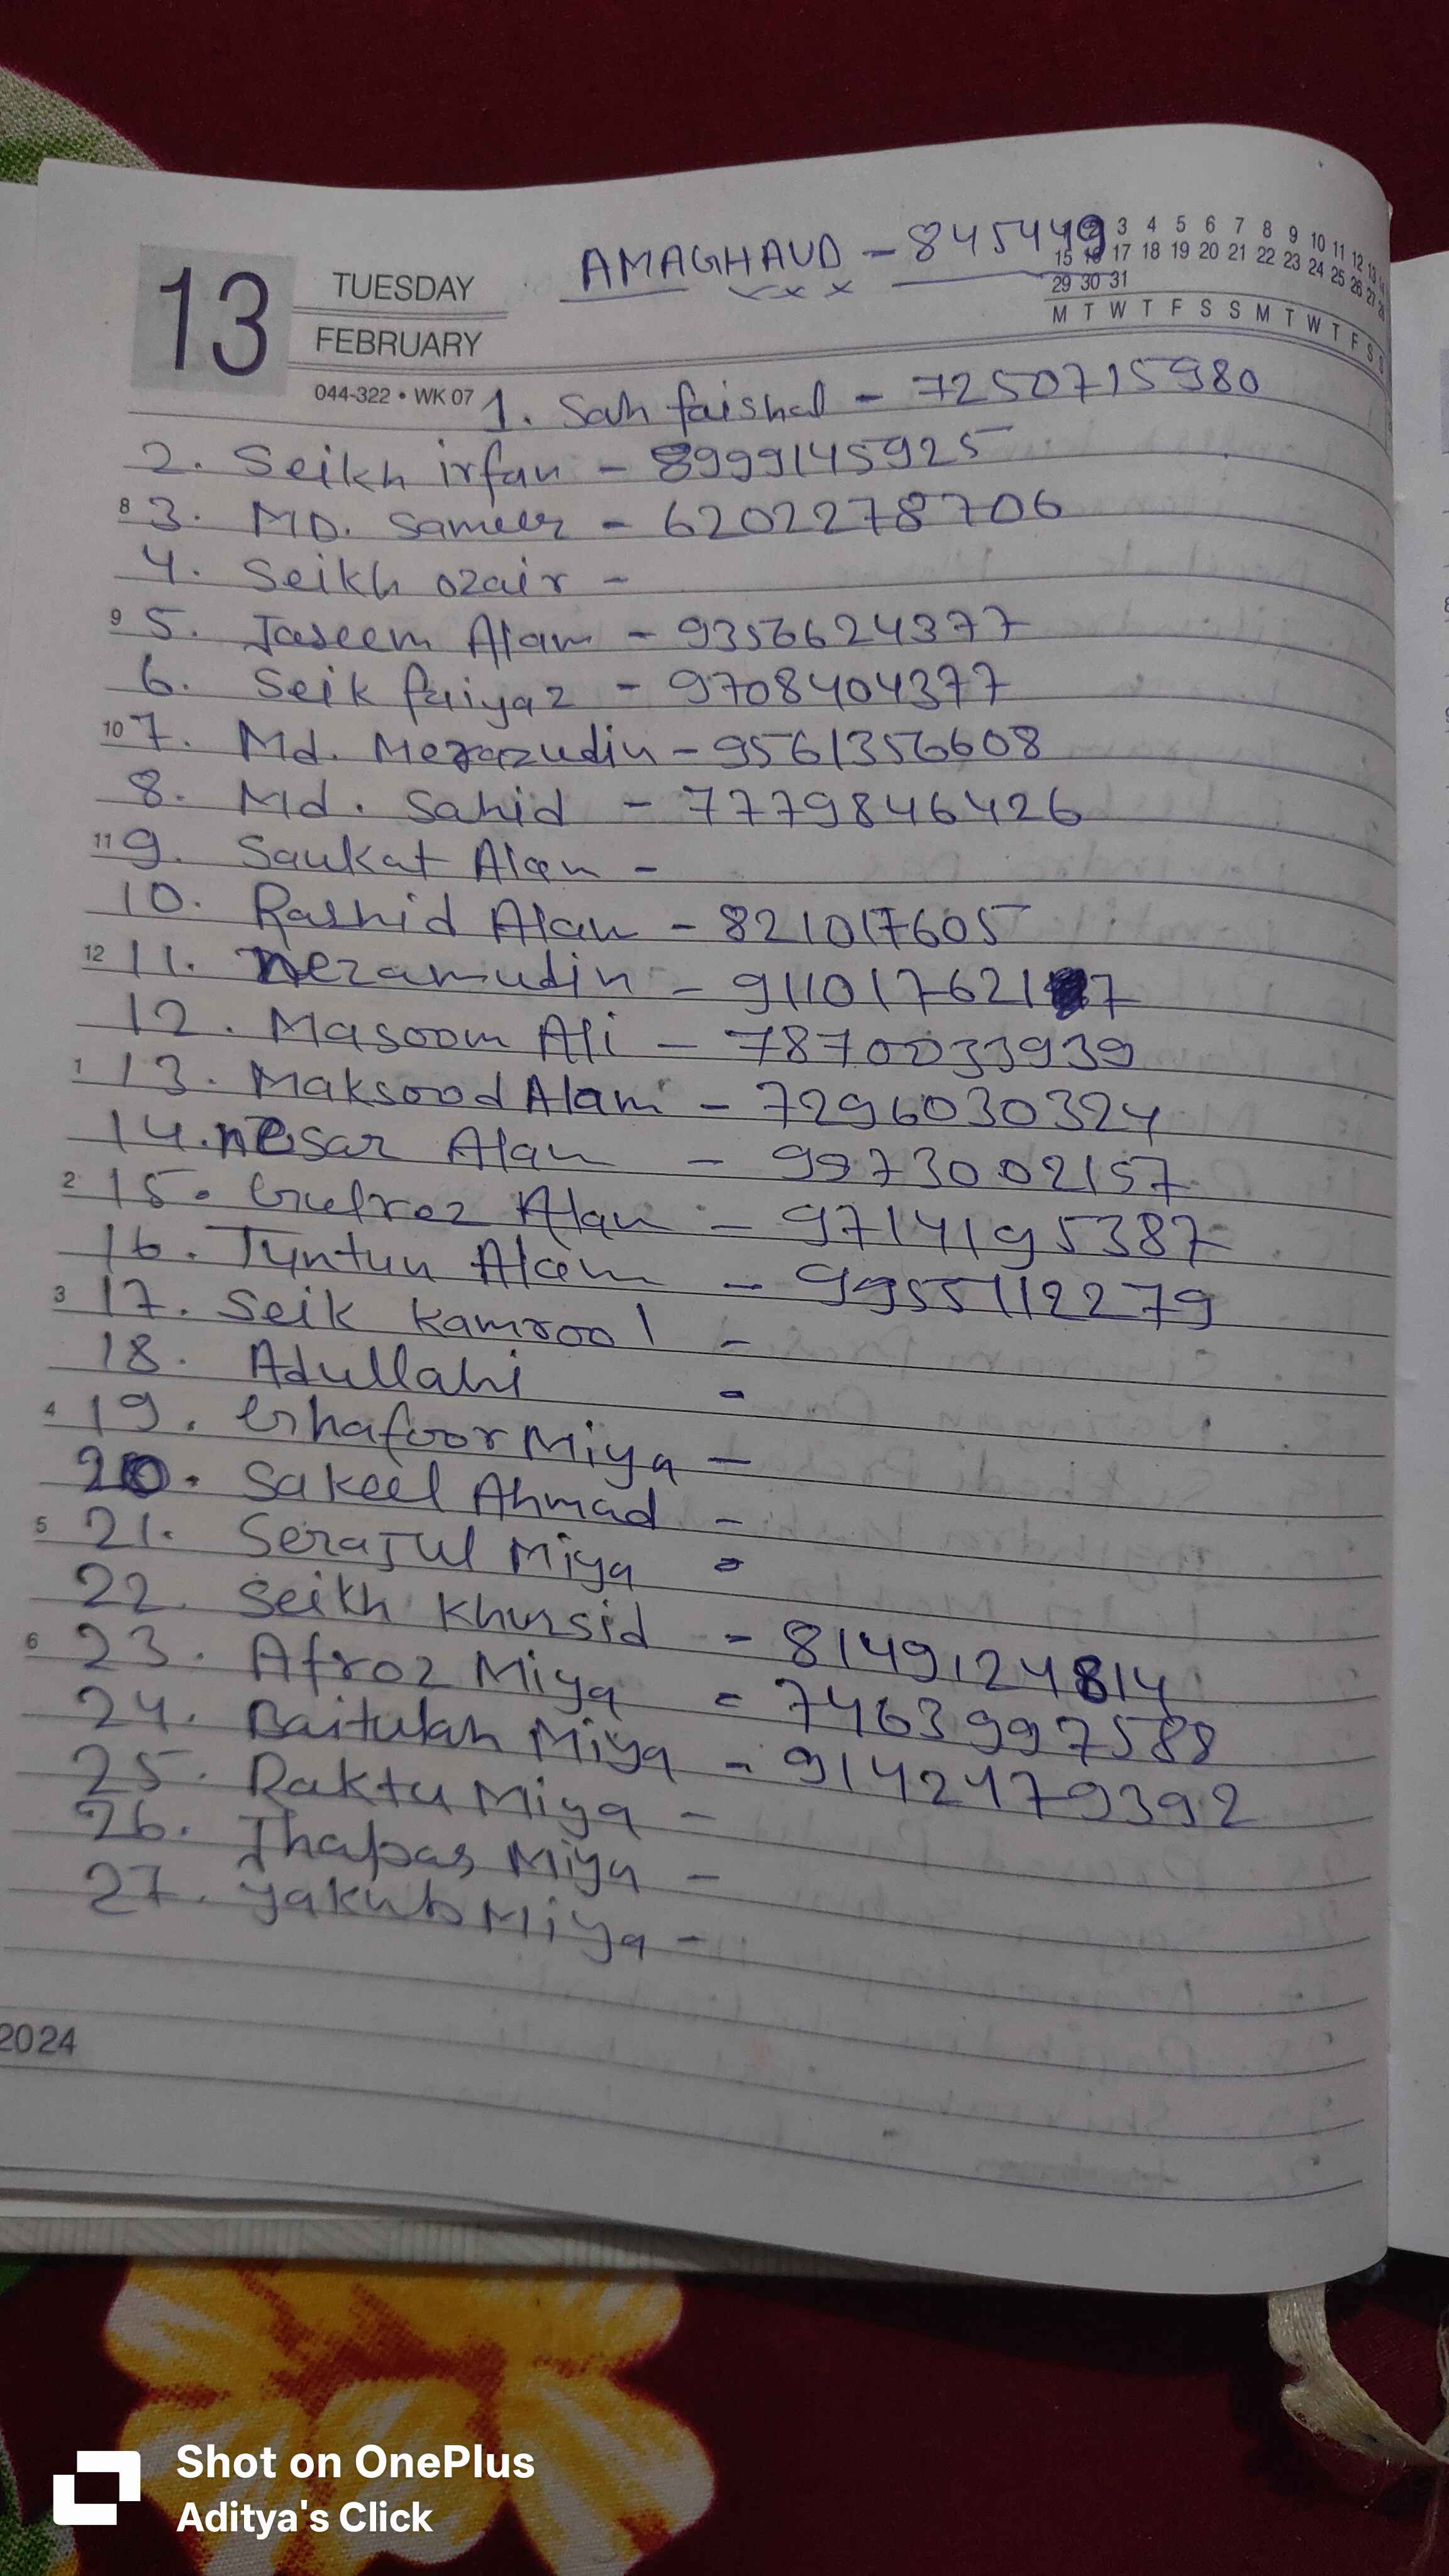 AMAGHAUD - 845449
13 TUESDAY
FEBRUARY
044-322 • WK 07
3 4 5 6 7 8 9 10 11 12 13 14
15 16 17 18 19 20 21 22 23 24 25 26 27 28
29 30 31
M T W T F S S M T W T F S S
1. Sah faishal - 7250715980
2. Seikh irfan - 8999145925
8 3. MD. Sameer - 6202278706
4. Seikh ozair -
9 5. Jaseem Alam - 9356624377
6. Seik faiyaz - 9708404377
10 7. Md. Merazudin - 9561356608
8. Md. Sahid - 7779846426
11 9. Saukat Alam -
10. Rashid Alam - 821017605
12 11. nezamudin - 9110176217
12. Masoom Ali - 7870033939
1 13. Maksood Alam - 7296030324
14. nesar Alam - 9973002157
2 15. Gulrez Alam - 9714195387
16. Tuntun Alam - 9955112279
3 17. Seik Kamrool -
18. Adullahi -
4 19. Ghafoor Miya -
20. Sakeel Ahmad -
5 21. Serajul Miya =
22. Seikh Khursid - 8149124814
6 23. Afroz Miya = 7463997588
24. Baitulah Miya - 9142479392
25. Raktu Miya -
26. Jhapas Miya -
27. Yakub Miya -
2024
Shot on OnePlus
Aditya's Click